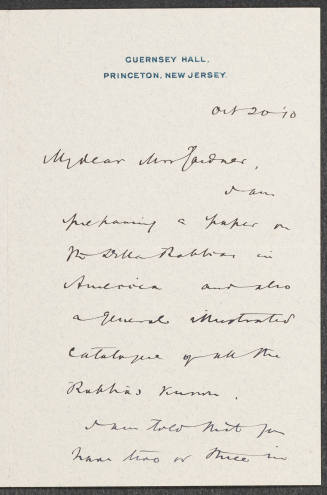 GUERNSEY HALL,
PRINCETON, NEW JERSEY.
Oct 20 '10
My dear Mrs Gardner,
I am
preparing a paper on
the Della Robbias in
America and also
a general illustrated
catalogue of all the
Robbias known.
I am told that you
have two or three in